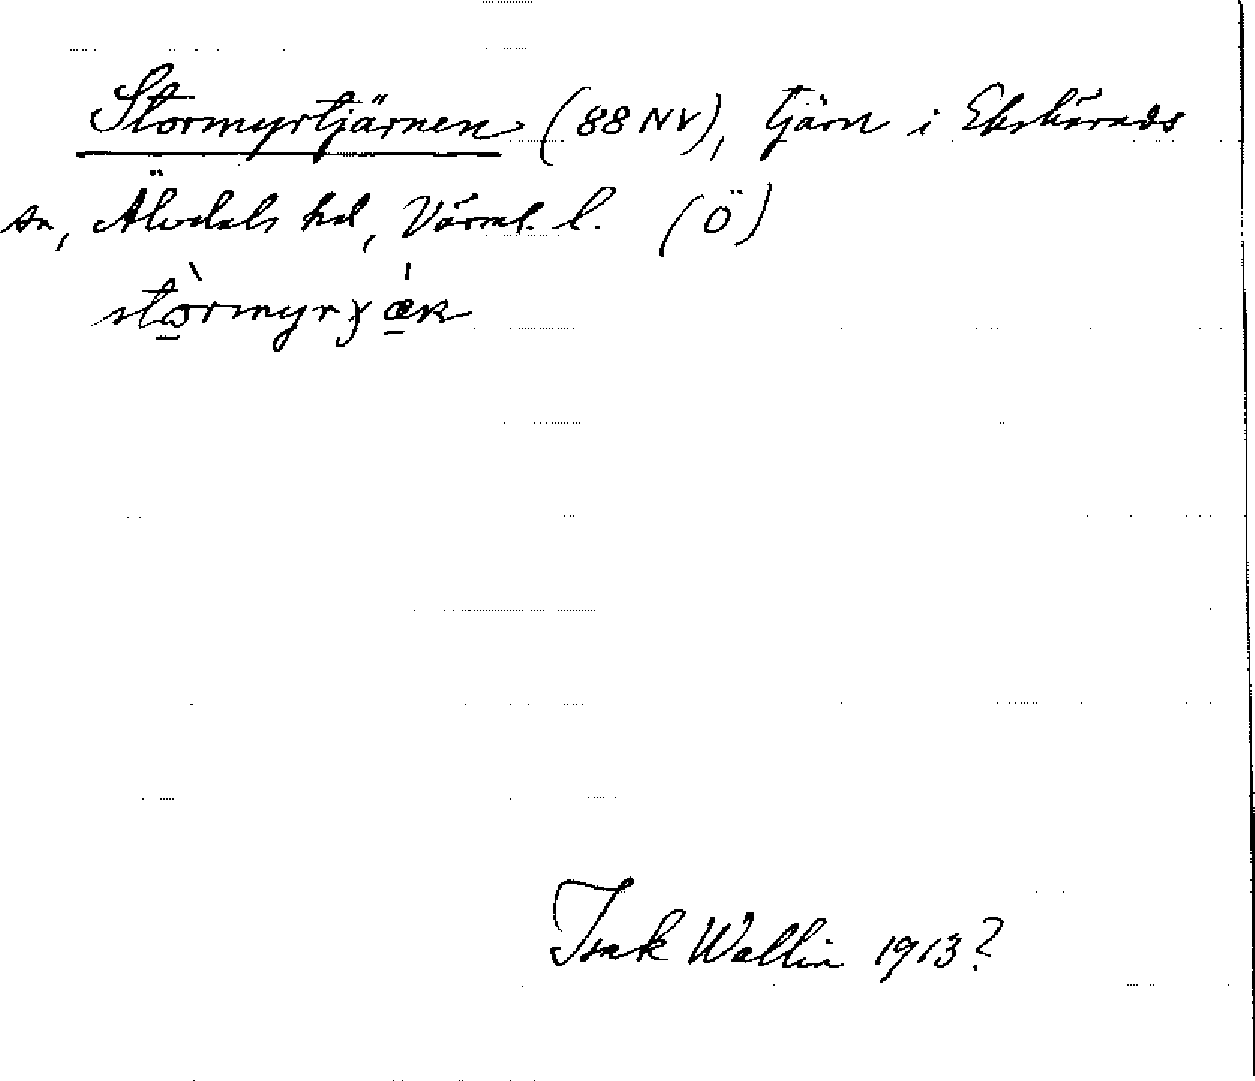 Stormyrtjärnen (88 NV), tjärn i Ekshärads
sn, Älvdals hd, Värml. l. (Ö)
Isak Wallin 1913?